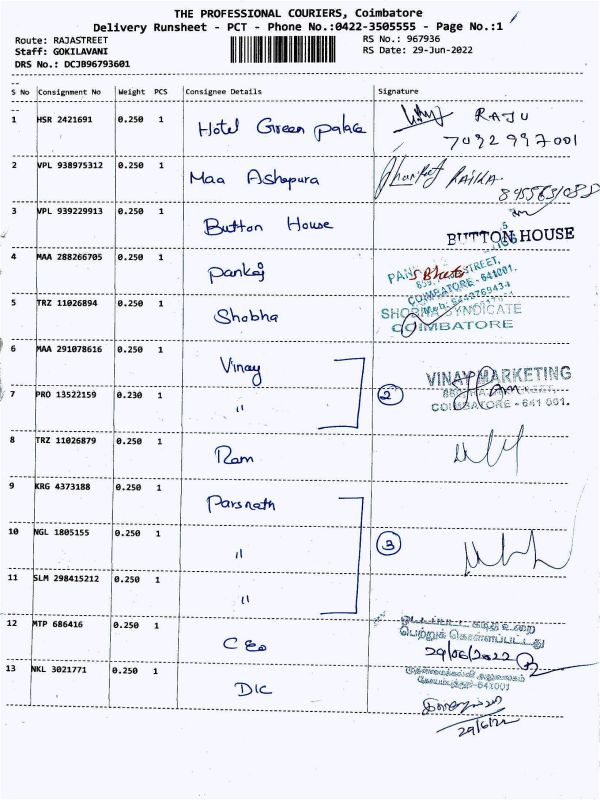 THE PROFESSIONAL COURIERS, Coimbatore
Delivery Runsheet - PCT - Phone No.:0422-3505555 - Page No.:1
Route: RAJASTREET RS No.: 967936
Staff: GOKILAVANI RS Date: 29-Jun-2022
DRS No.: DCJB96793601
S No Consignment No Weight PCS Consignee Details Signature
1 HSR 2421691 0.250 1 Hotel Green palace RAJU
7092997001
2 VPL 938975312 0.250 1 Maa Ashapura
3 VPL 939229913 0.250 1 Button House BUTTON HOUSE
4 MAA 288266705 0.250 1 Pankaj STREET,
COIMBATORE - 641001.
5 TRZ 11026894 0.250 1 Shobha SHOBHA SYNDICATE
COIMBATORE
6 MAA 291078616 0.250 1 Vinay VINAY MARKETING
7 PRO 13522159 0.230 1 " 2
COIMBATORE - 641 001.
8 TRZ 11026879 0.250 1 Ram
9 KRG 4373188 0.250 1 Parsnath
10 NGL 1805155 0.250 1 " 3
11 SLM 298415212 0.250 1 "
12 MTP 686416 0.250 1 CEO
பெற்றுக் கொள்ளப்பட்டது
29/06/2022
13 NKL 3021771 0.250 1 DIC
கோயம்புத்தூர்-641001
29/6/22